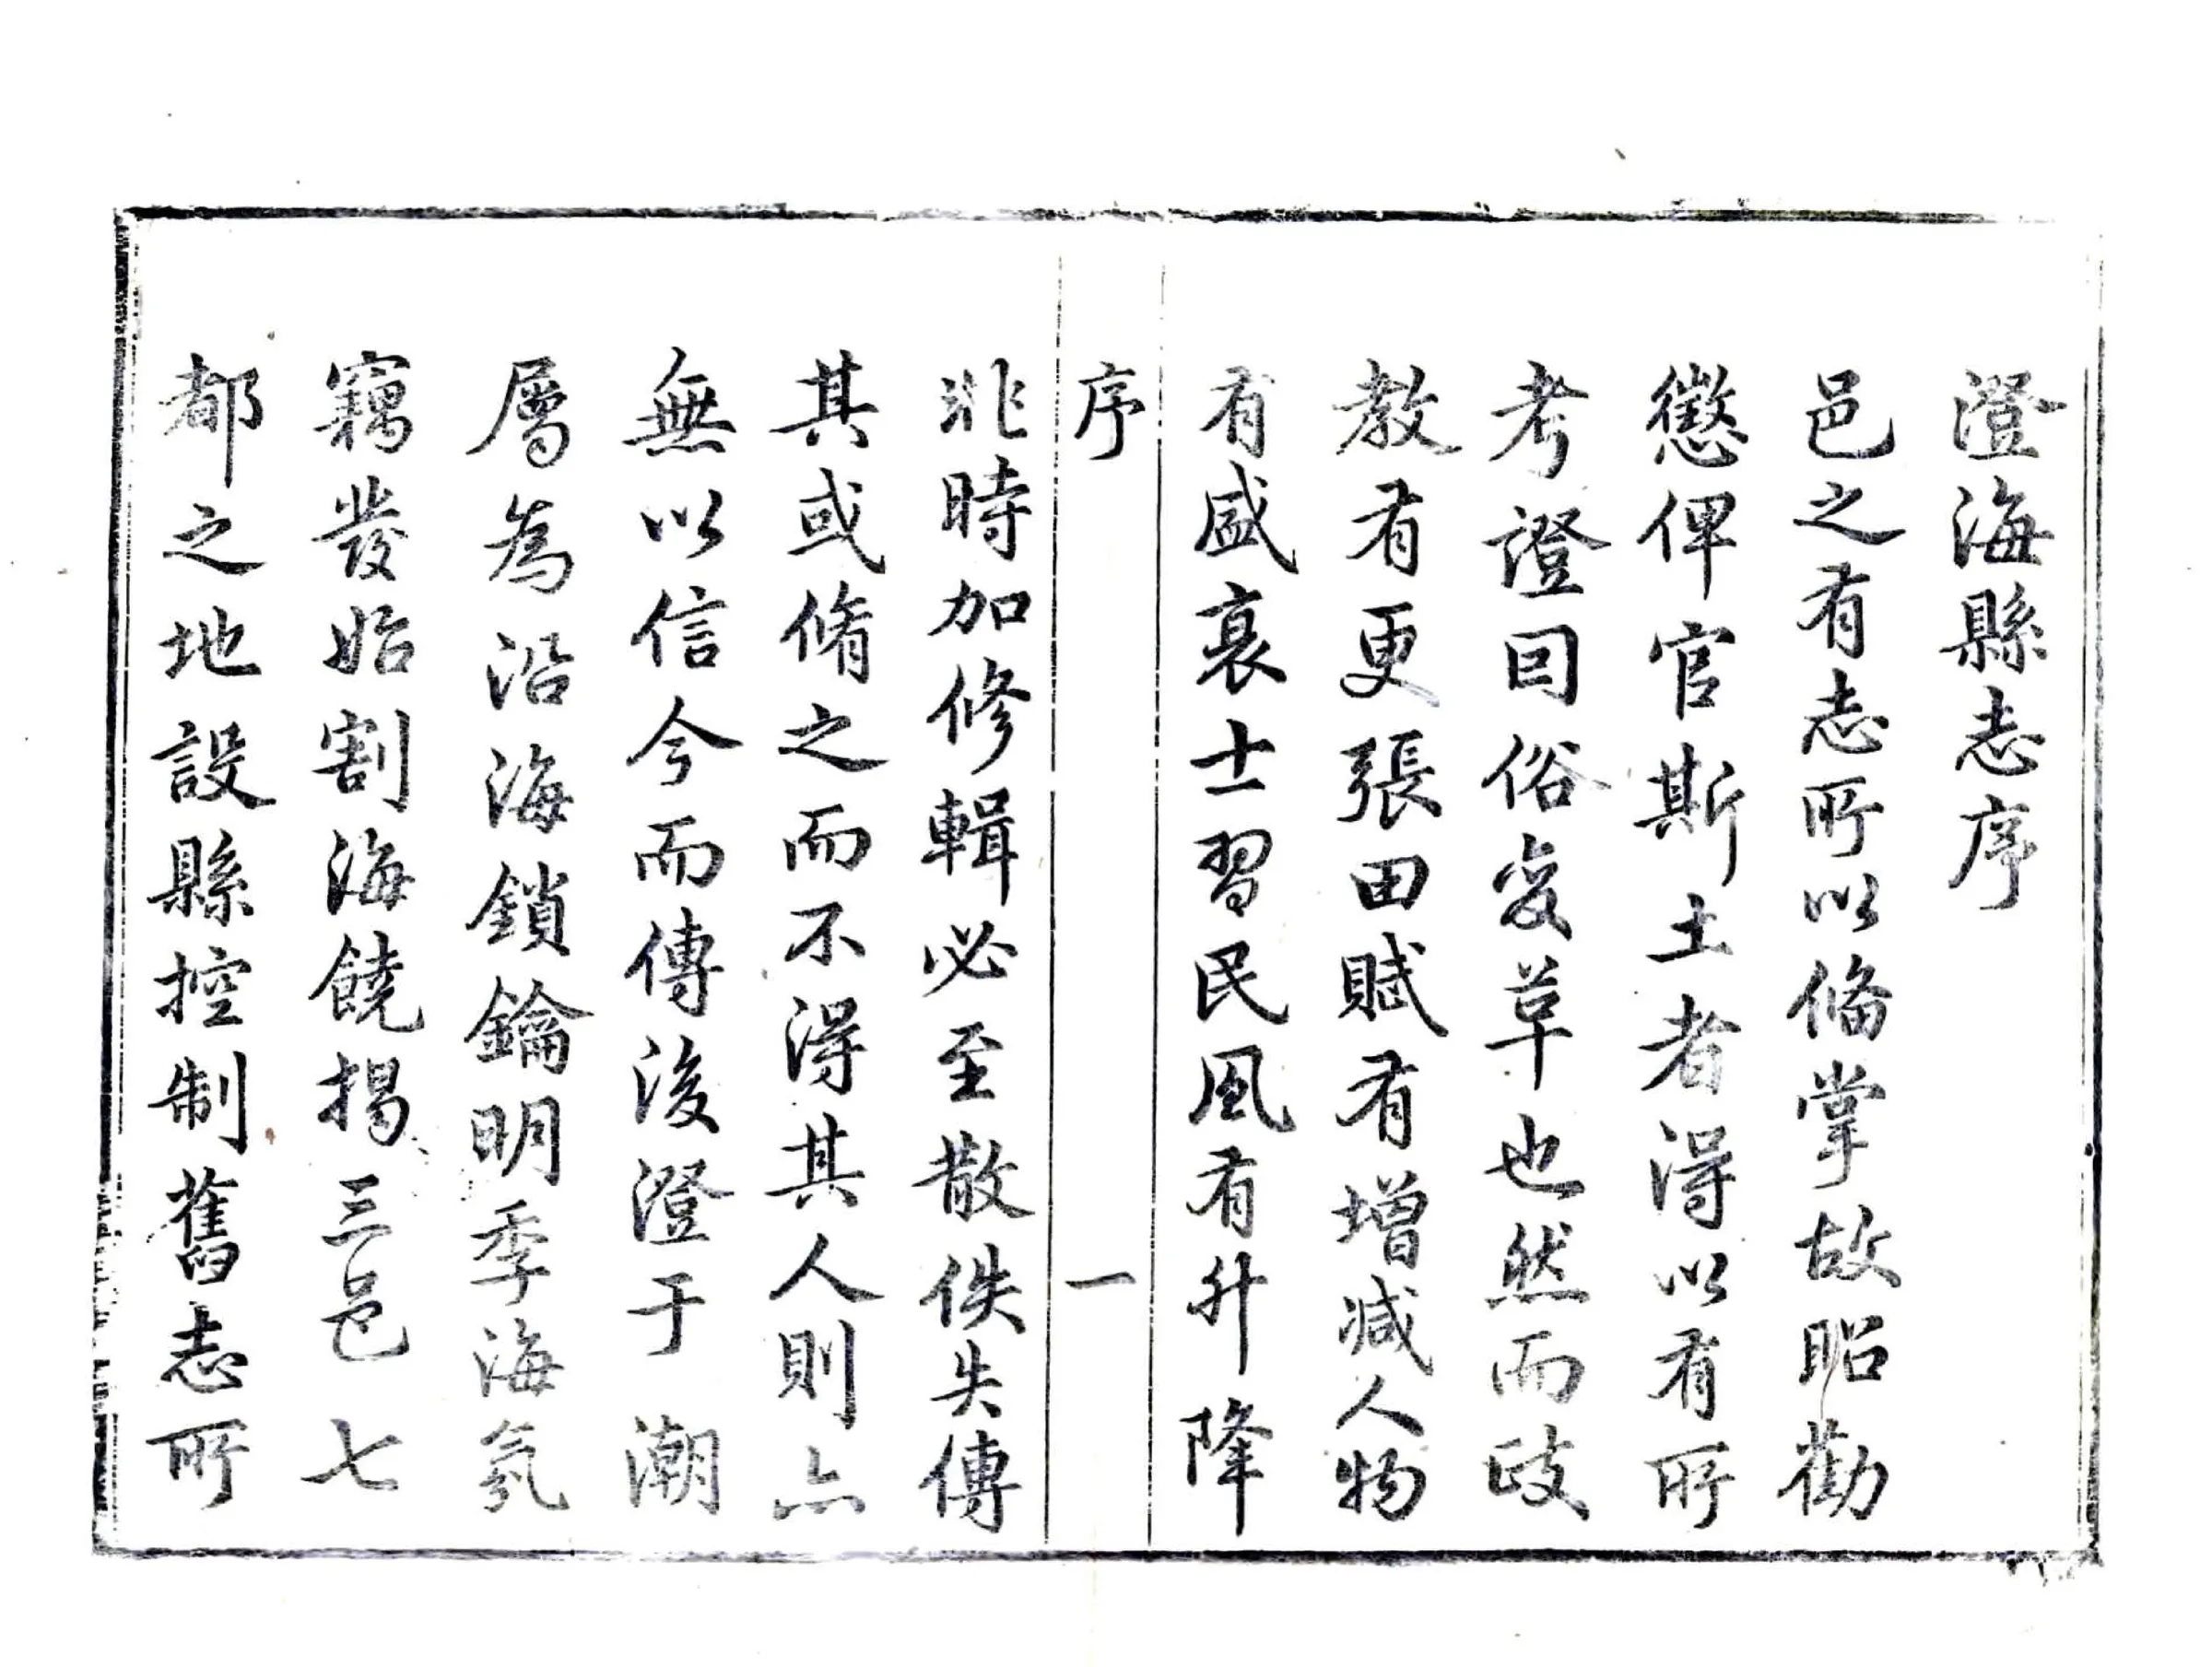 澄海縣志序
邑之有志所以偹掌故昭勸
懲俾官斯土者得以有所
考證囙俗变革也然而政
教有更張田賦有增減人物
有盛衰士習民風有升降
序 一
非時加修輯必至散佚失傳
其或脩之而不得其人則亦
無以信今而傳後澄于潮
屬為沿海鎖鑰明季海氛
竊發始割海饒揭三邑七
都之地設縣控制舊志所